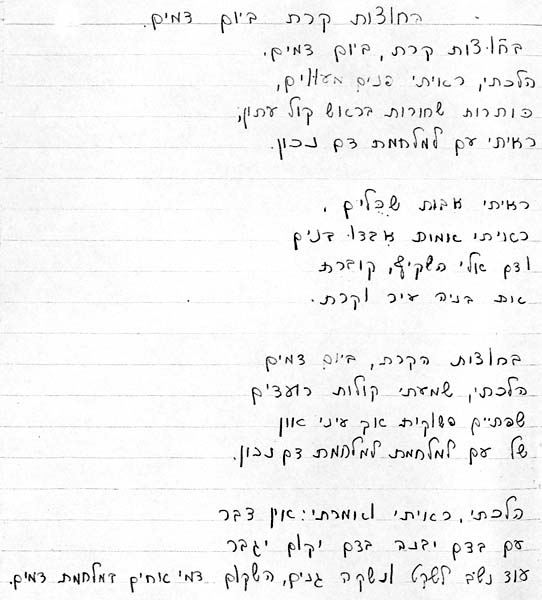 בחוצות קרת ביום דמים.
בחוצות קרת, ביום דמים.
הלכתי, ראיתי פנים מעוים,
כותרות שחורות בראש קול עתון,
ראיתי עם למלחמת דם נכון.
ראיתי אבות שכלים,
ראיתי אמות אבדו בנים
ודם אלי השקיף, קוברת
את בניה עיר וקרת.
בחוצות הקרת, ביום דמים
הלכתי, שמעתי קולות רועדים
שפתיים פשוקות אך עיני און
של עם למלחמת למלחמת דם נכון.
הלכתי, ראיתי ואמרתי: אין דבר
עם בדם יבנה בדם יקום יגבר
עוד נשיב לשקט ונשקה גנים, השקום דמי אחים במלחמת דמים.